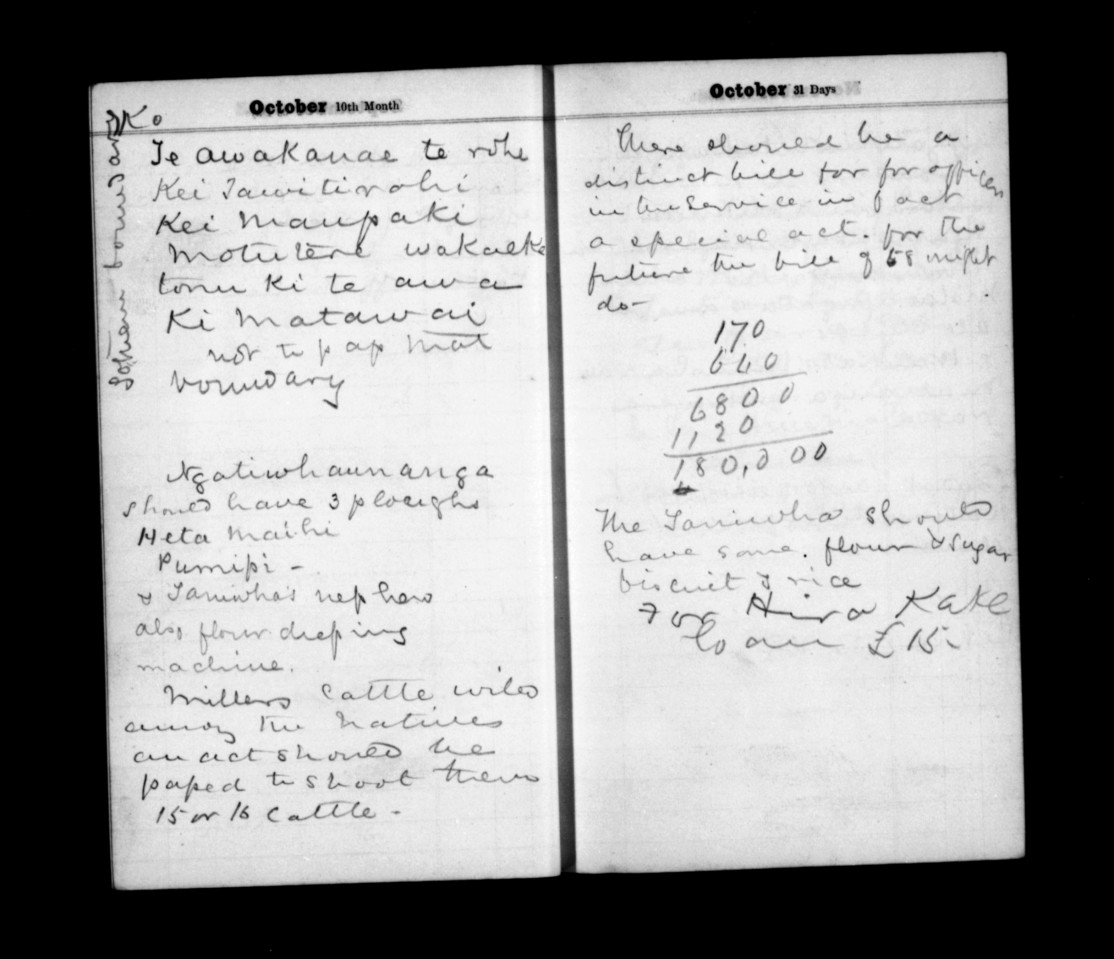 October 10th Month
Ko
Te awakanae te rohe
Kei Tawitirohi
Kei Maupaki
Moturere wakaeke
tonu Ki te awa
Ki Matawai
not to pap Mat
boundary
Ngatiwhaunanga
should have 3 ploughs
Heta Maihi
Pumipi -
& Taniwha's nephew
also flour
machine.
Millers Cattle wild
among the Natives
an act should be
paped to shoot them
15 or 16 Cattle -
October 31 Days
There should be a
distinct bill for for officers
in the service in fact
a special act. for the
future the bill of 68 might
do -
170
640
6800
1120
180,000
The Taniwha should
have some. flour & sugar
biscuit & rice
For Hira Kake
loan £15.